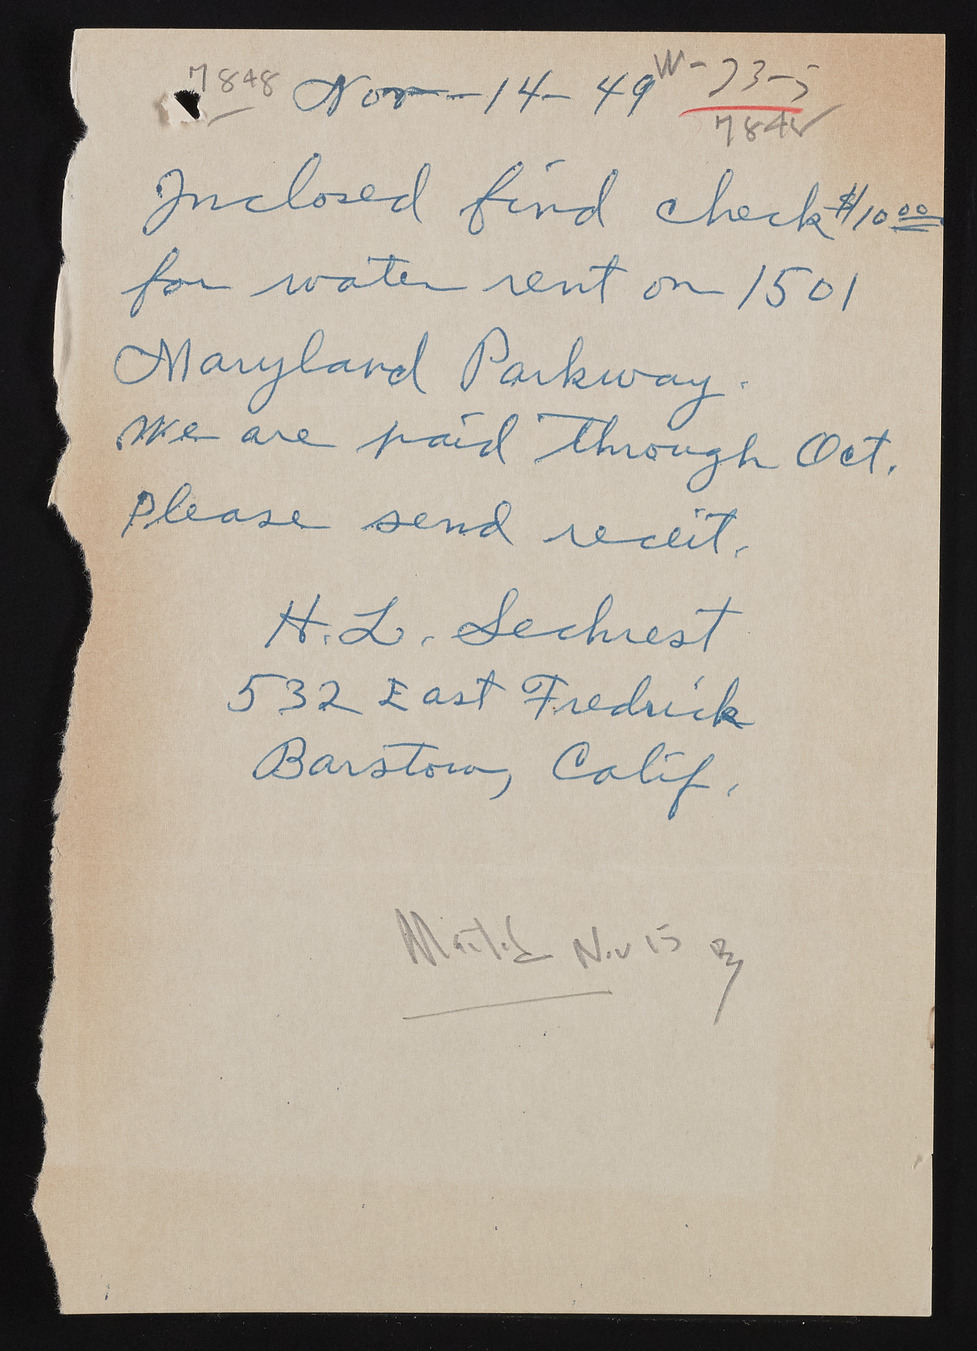 7848 Nov-14-49 W-23-5
7848
Inclosed find check $10.00
for water rent on 1501
Maryland Parkway.
We are paid through Oct.
Please send receit.
H. L. Sechrest
532 East Fredrick
Barstow, Calif.
Mailed Nov 15